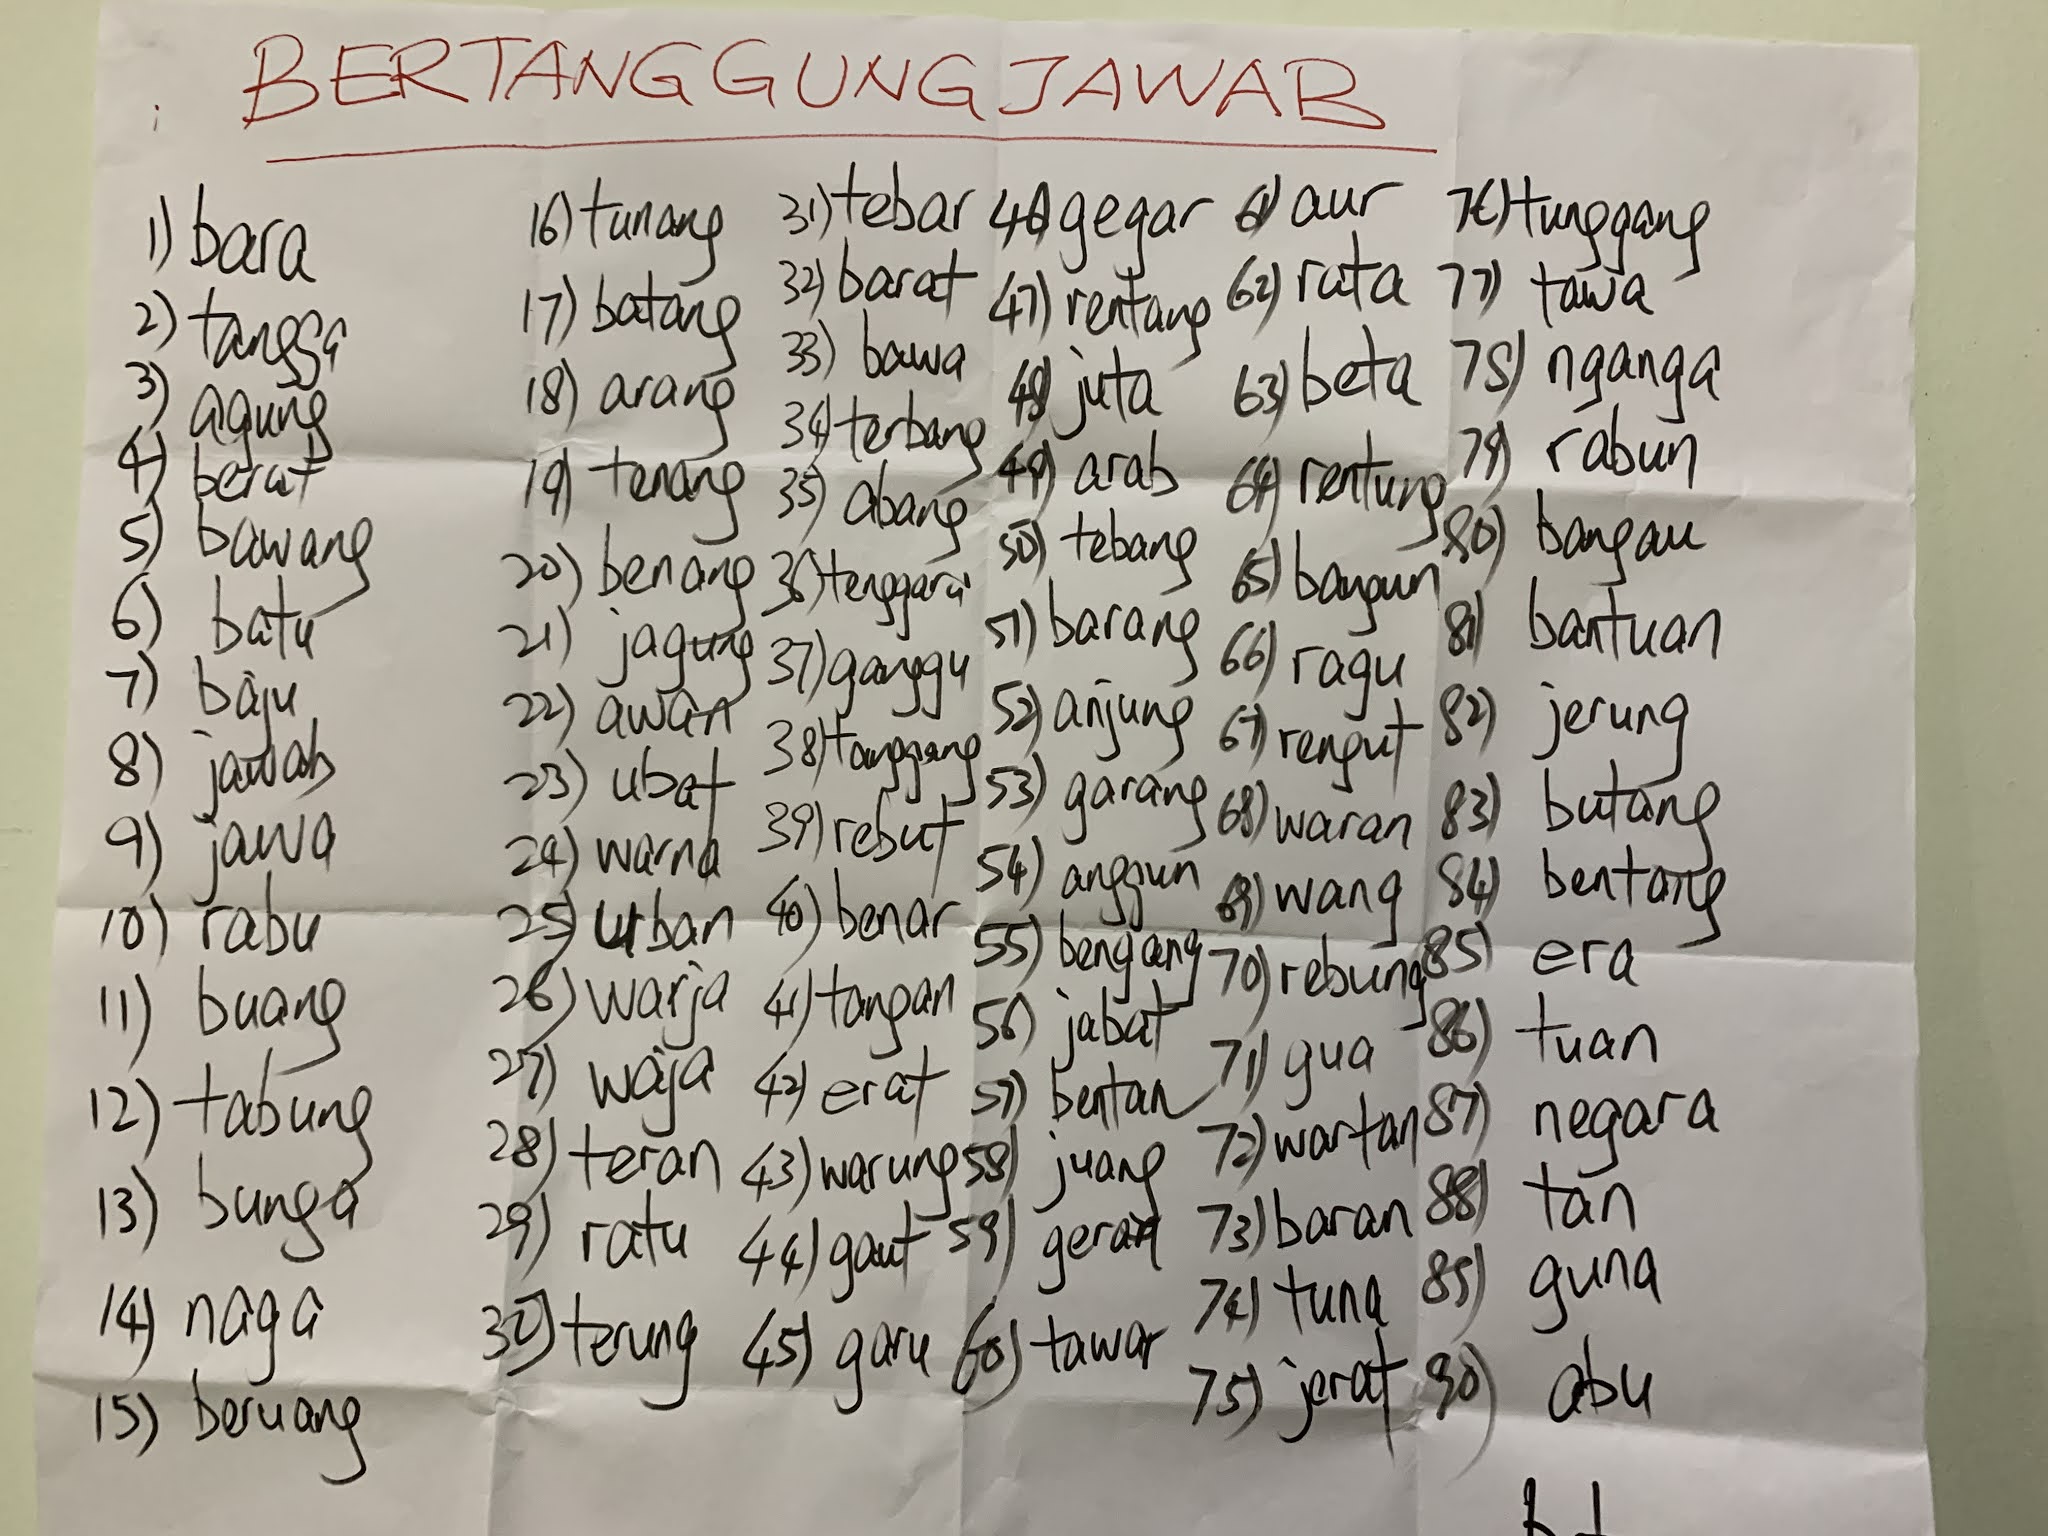 BERTANGGUNGJAWAB
1) bara
2) tangga
3) agung
4) berat
5) bawang
6) batu
7) baju
8) jawab
9) jawa
10) rabu
11) buang
12) tabung
13) bunga
14) naga
15) beruang
16) tunang
17) batang
18) arang
19) tenang
20) benang
21) jagung
22) awan
23) ubat
24) warna
25) urban
26) warja
27) waja
28) teran
29) ratu
30) terung
31) tebar
32) barat
33) bawa
34) terbang
35) abang
36) tenggara
37) ganggu
38) tanggang
39) rebut
40) benar
41) tangan
42) erat
43) warung
44) gaut
45) garu
46) gegar
47) rentang
48) juta
49) arab
50) tebang
51) barang
52) anjung
53) garang
54) anggun
55) bengang
56) jabat
57) bentan
58) juang
59) geran
60) tawar
61) aur
62) rata
63) beta
64) rentung
65) bangun
66) ragu
67) rengut
68) waran
69) wang
70) rebung
71) gua
72) wartan
73) baran
74) tuna
75) jerat
76) tunggang
77) tawa
78) nganga
79) rabun
80) bangau
81) bantuan
82) jerung
83) butang
84) bentang
85) era
86) tuan
87) negara
88) tan
89) guna
90) abu